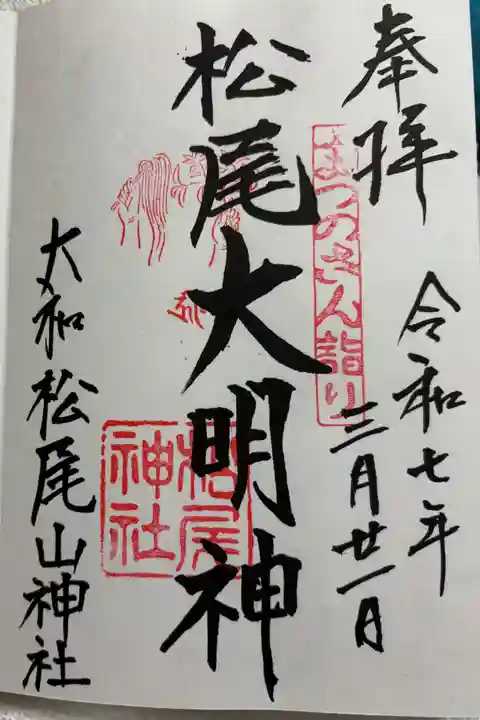 奉拝
令和七年
三月廿一日
まつのさん詣り
松尾大明神
松尾
神社
大和松尾山神社